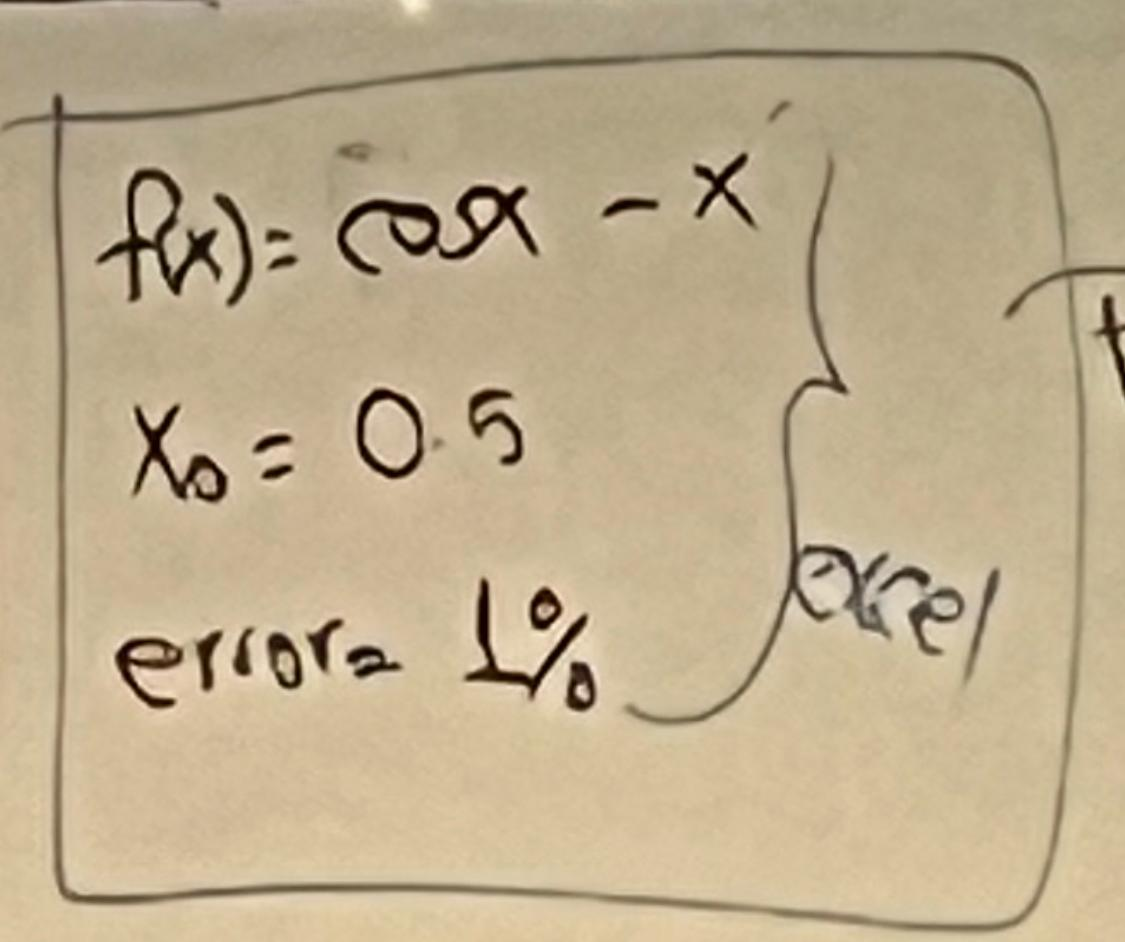 f(x)= cosx - x
x₀ = 0.5
error= 1%
excel